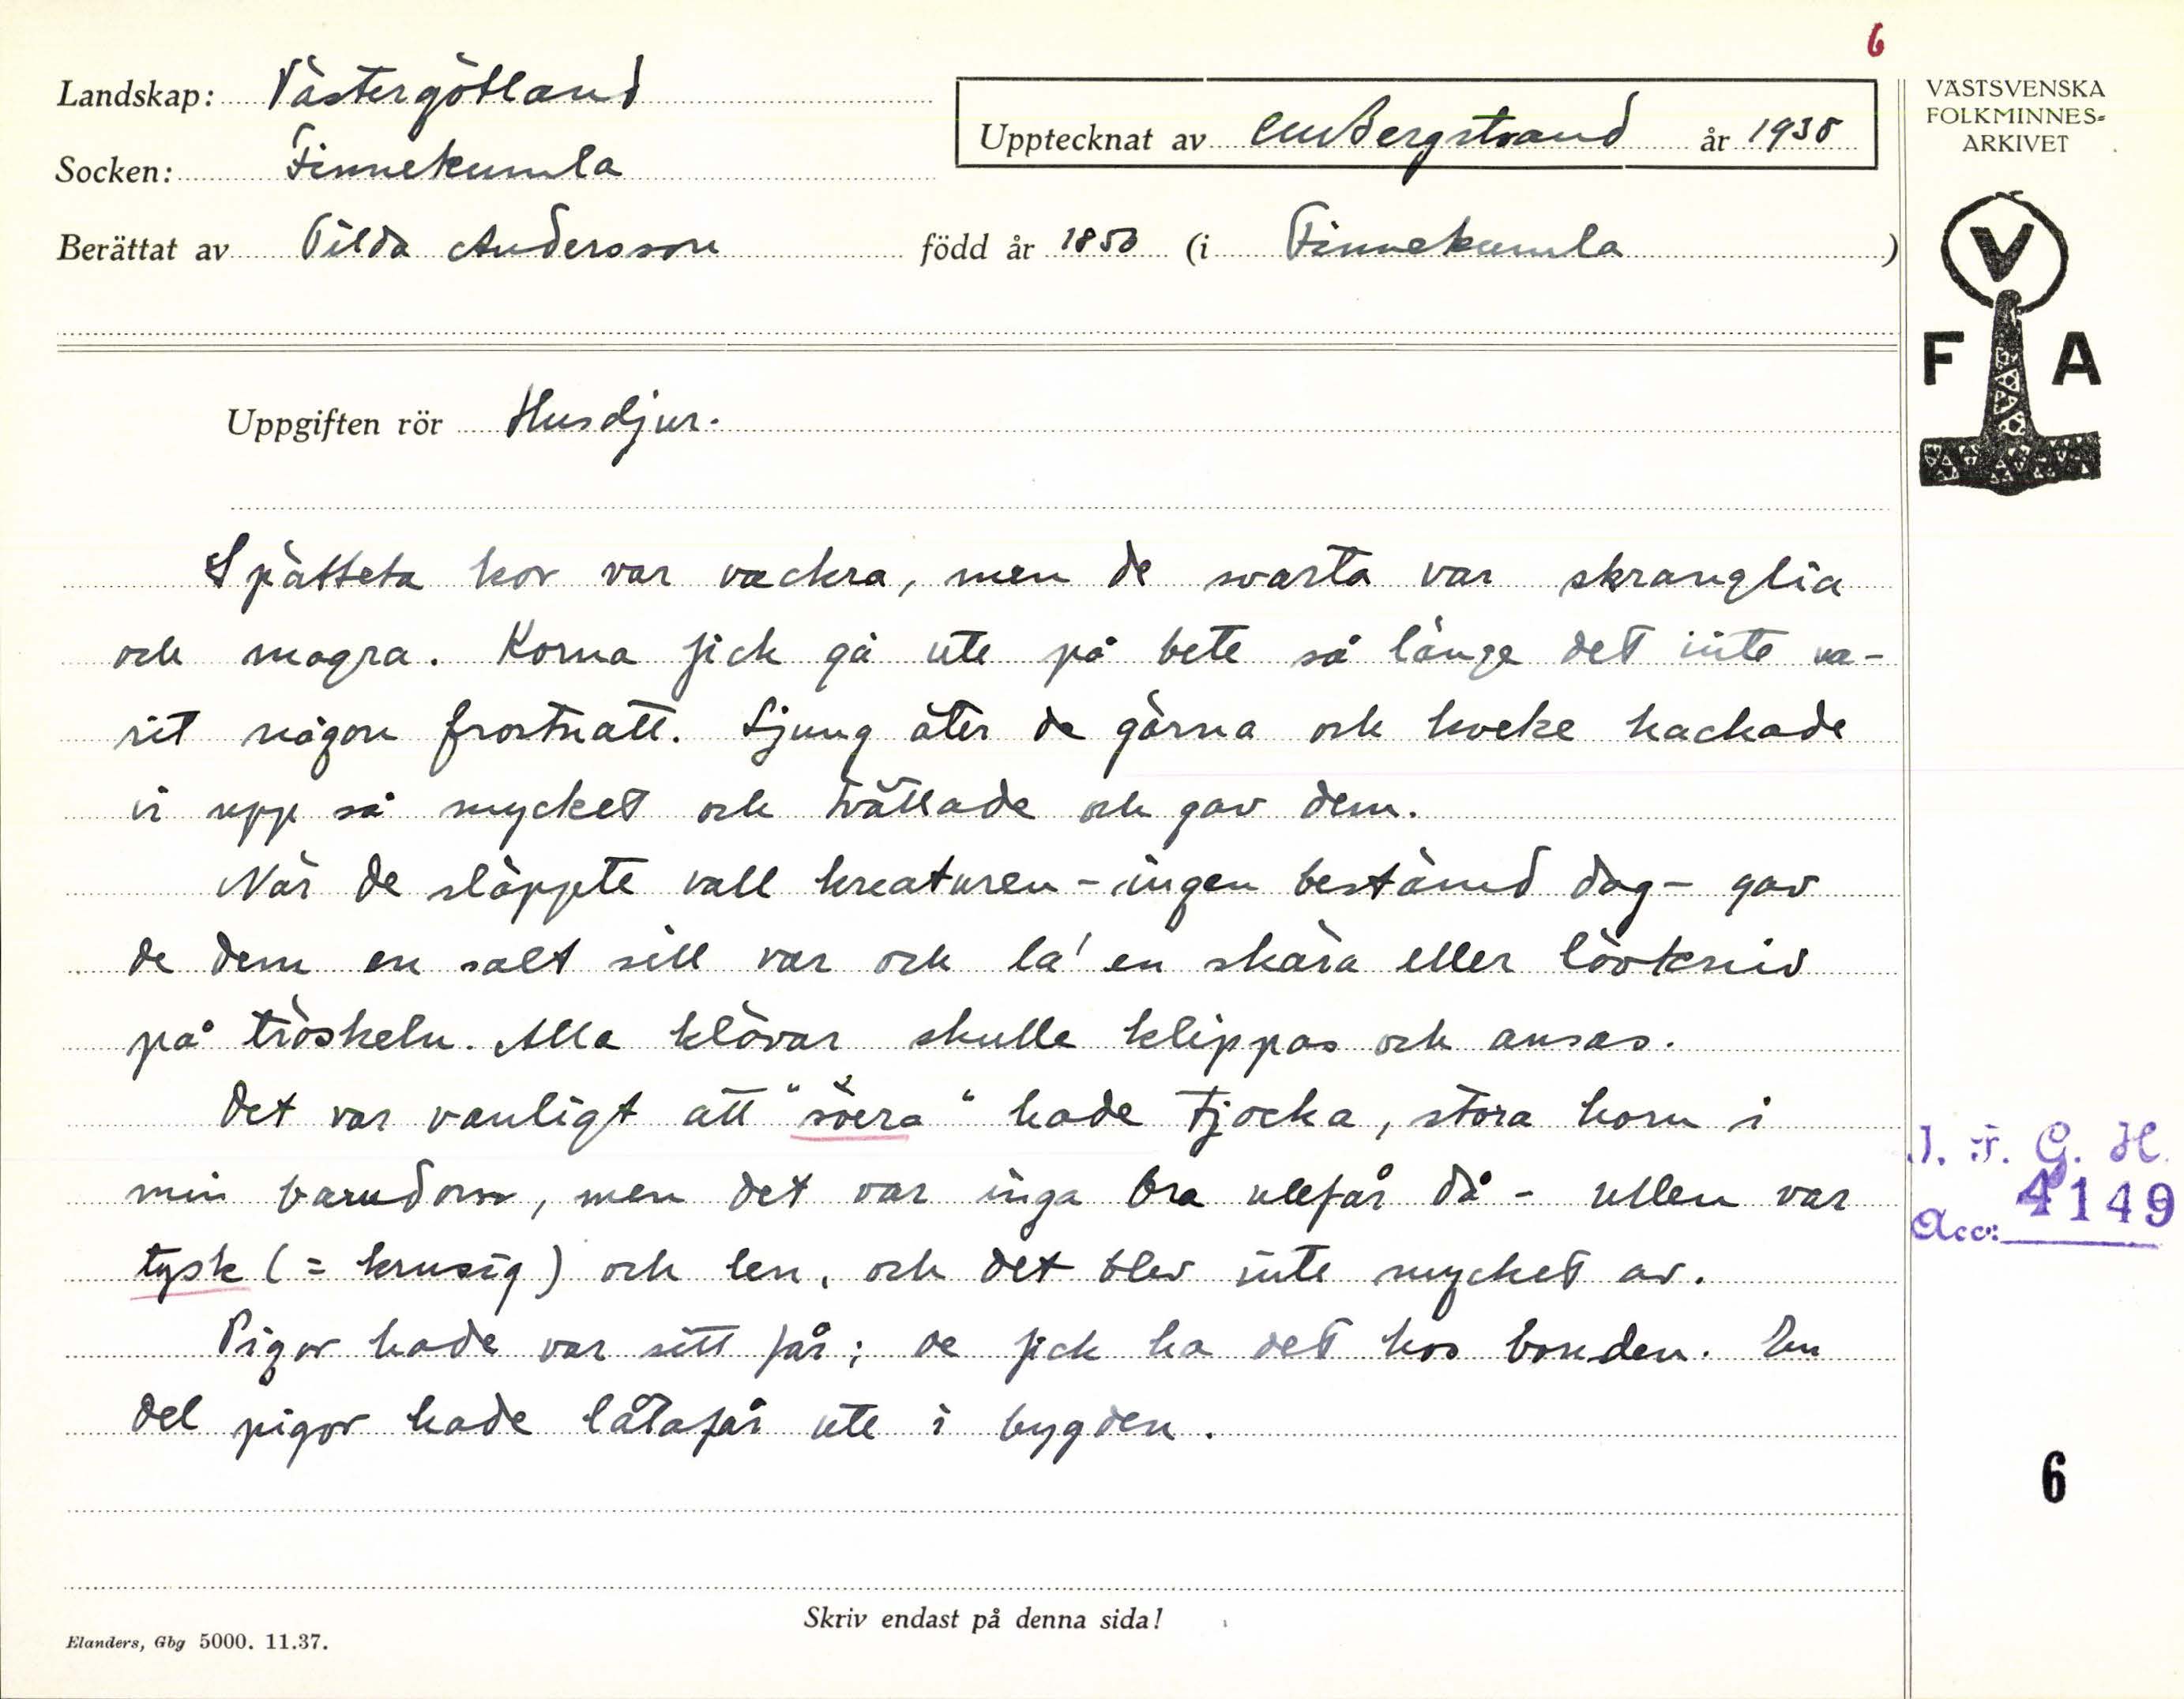 6
Landskap: Västergötland
Upptecknat av CMBergstrand år 1938
VÄSTSVENSKA
FOLKMINNES-
ARKIVET
Socken: Finnekumla
Berättat av Tilda Andersson född år 1850 (i Finnekumla)
V
F A
Uppgiften rör Husdjur.
Spätteta kor var vackra, men de svarta var skranglia
och magra. Korna fick gå ute på bete så länge det inte va-
rit någon frostnatt. Ljung äter de gärna och kveke hackade
vi upp så mycket och tvättade och gav dem.
När de släppte vall kreaturen - ingen bestämd dag - gav
de dem en salt sill var och la' en skära eller lövkniv
på tröskeln. Alla klövar skulle klippas och ansas.
Det var vanligt att "söera" hade tjocka, stora horn i
min barndom, men det var inga bra ullfår då - ullen var
tysk (= krusig) och len, och det blev inte mycket av.
Pigor hade var sitt får; de fick ha det hos bonden. En
del pigor hade låtafår ute i bygden.
I. F. G. H.
Acc: 4149
6
Skriv endast på denna sida!
Elanders, Gbg 5000. 11.37.